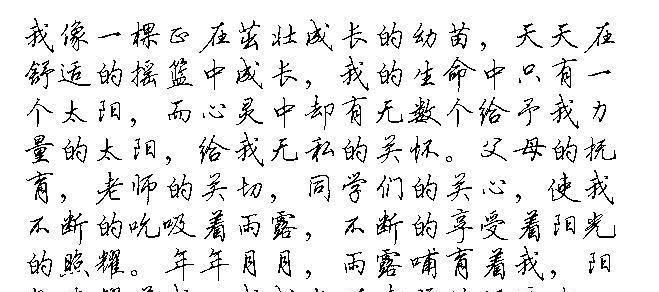 我像一棵正在茁壮成长的幼苗，天天在
舒适的摇篮中成长，我的生命中只有一
个太阳，而心灵中却有无数个给予我力
量的太阳，给我无私的关怀。父母的抚
育，老师的关切，同学们的关心，使我
不断的吮吸着雨露，不断的享受着阳光
的照耀。年年月月，雨露哺育着我，阳